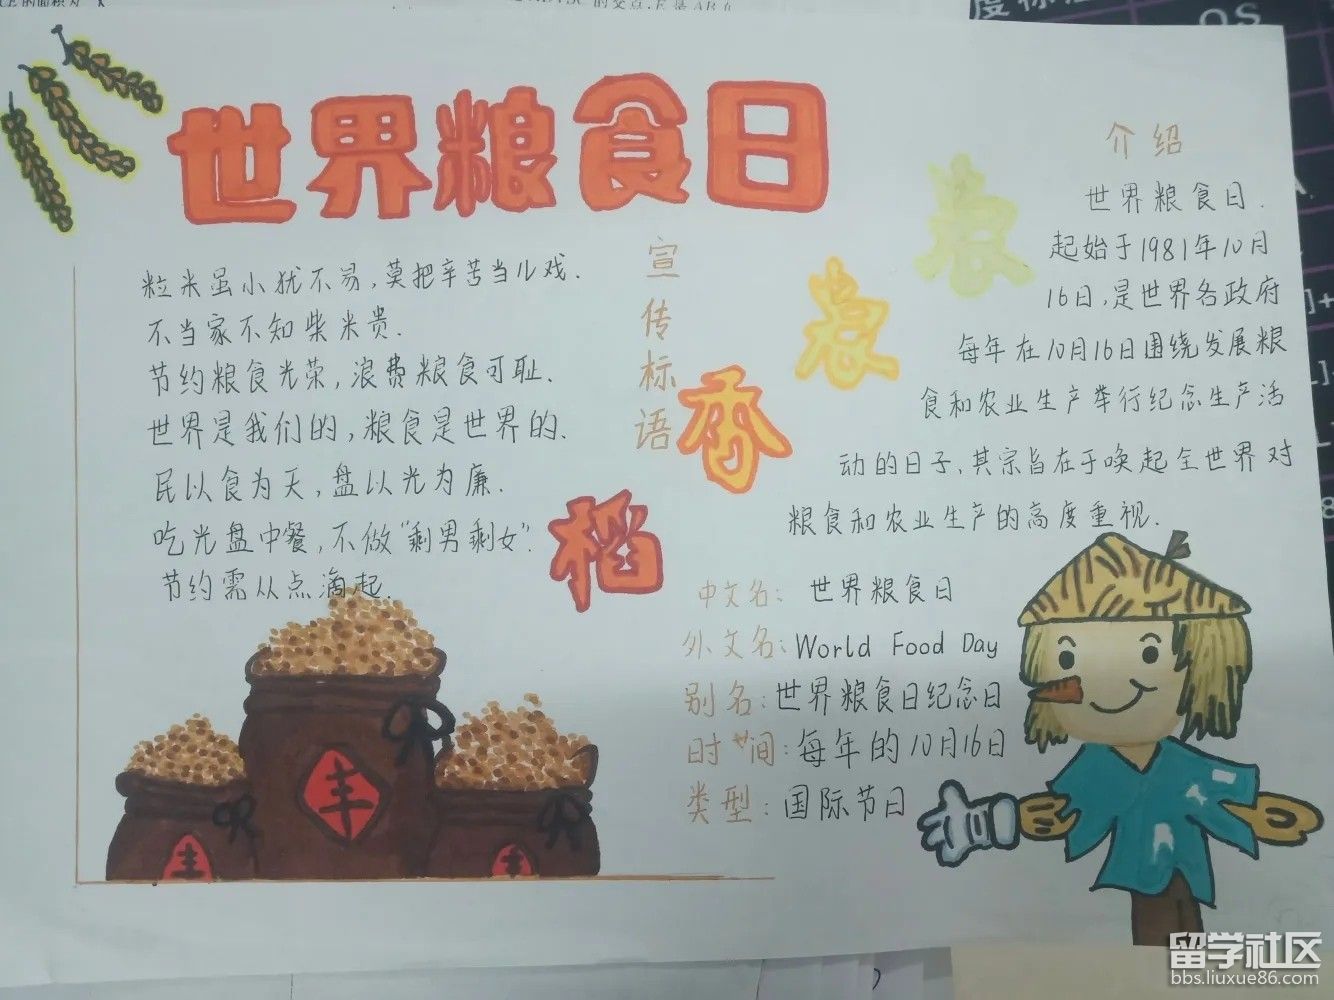 世界粮食日
粒米虽小犹不易,莫把辛苦当儿戏.
不当家不知柴米贵.
节约粮食光荣,浪费粮食可耻.
世界是我们的,粮食是世界的.
民以食为天,盘以光为廉.
吃光盘中餐,不做“剩男剩女”.
节约需从点滴起.
宣传标语
稻香
介绍
世界粮食日.
起始于1981年10月
16日,是世界各政府
每年在10月16日围绕发展粮
食和农业生产举行纪念生产活
动的日子,其宗旨在于唤起全世界对
粮食和农业生产的高度重视.
中文名: 世界粮食日
外文名: World Food Day
别名: 世界粮食日纪念日
时间: 每年的10月16日
类型: 国际节日
丰
丰
丰
留学社区
bbs.liuxue86.com